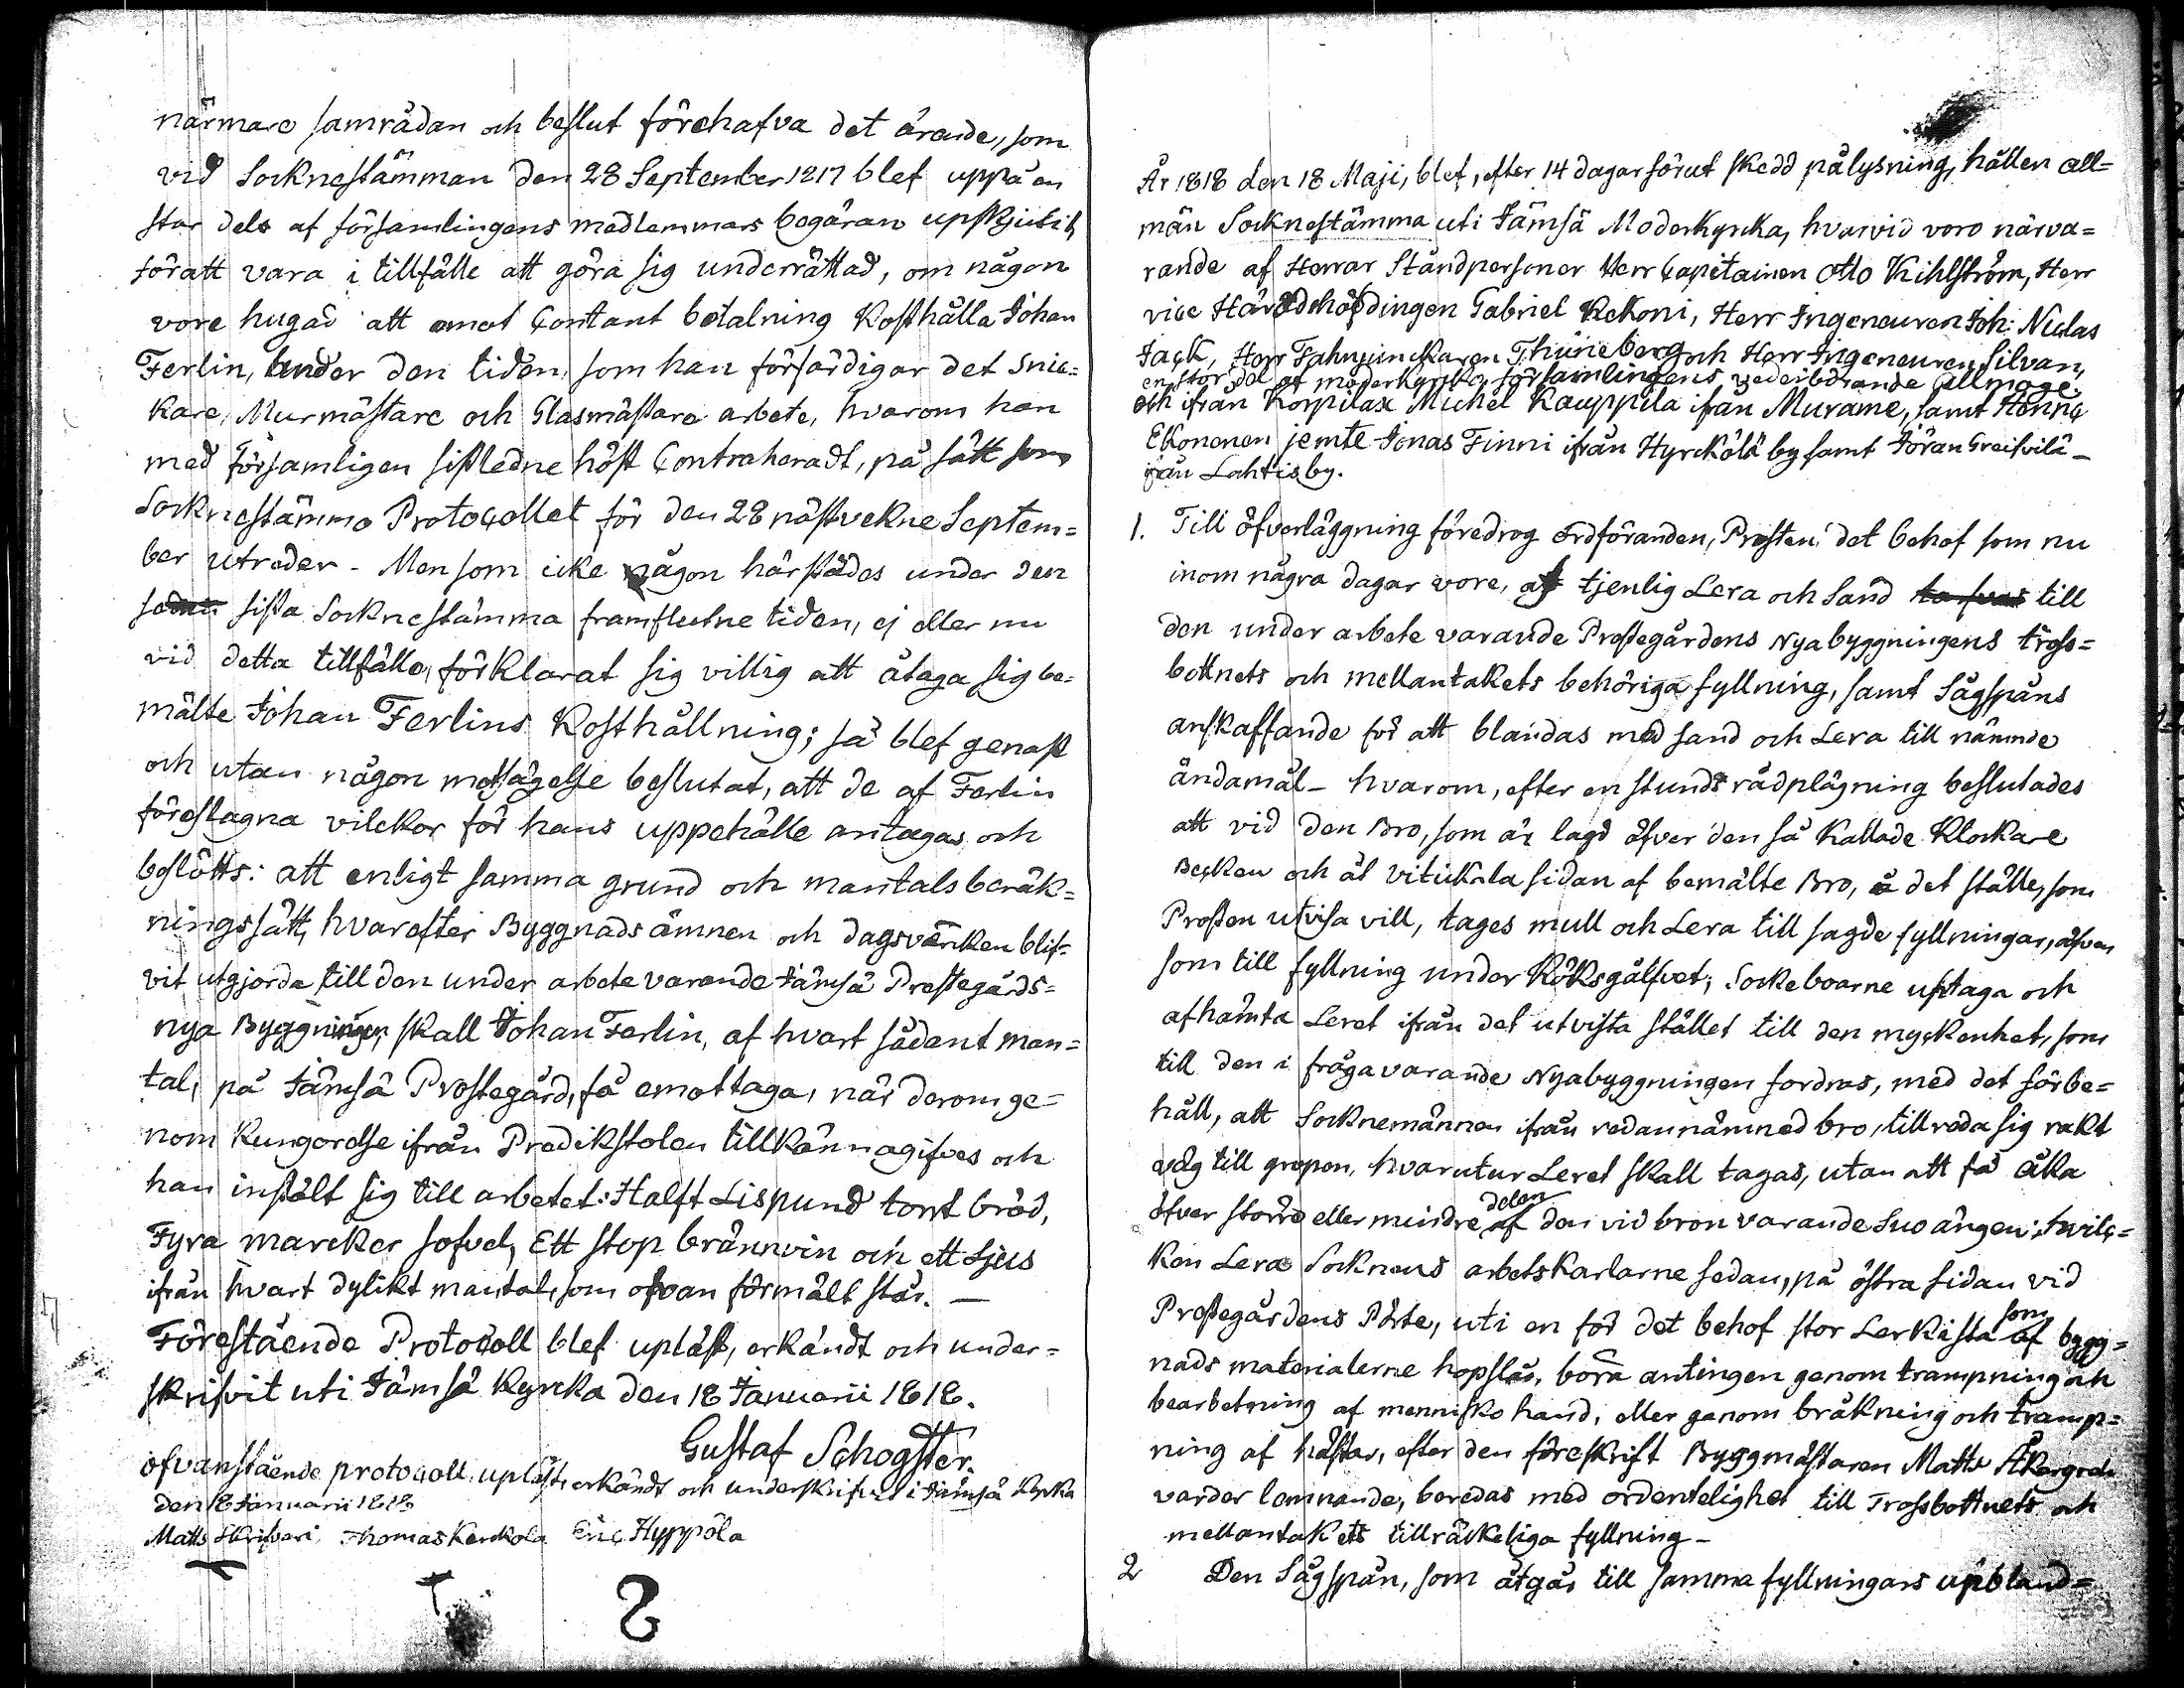 närmare samrådan och beslut förehafva det ärende, som
vid Socknestämman den 28 September 1817 blef uppå en
stor dels af församlingens medlemmars begäran upskjutit,
för att vara i tillfälle att göra sig underrättad, om någon
vore hugad att emot Contant betalning Kosthålla Johan
Ferlin, under den tiden, som han förfärdigar det Snic=
kare, Murmästare och Glasmästare arbete, hvarom han
med Församligen sistledne höst Contraheradt, på sätt som
Socknestämmo Protocollet för den 28 nästvekne Septem=
ber utreder. Men som icke någon härstädes under den
sista Socknestämma framflutne tiden, ej eller nu
vid detta tillfälle, förklarat sig villig att åtaga sig be=
mälte Johan Ferlins Kosthållning; så blef genast
och utan någon motsägelse beslutat, att de af Ferlin
föreslagna vilckor för hans uppehälle antagas och
beslötts: att enligt samma grund och mantals beräk=
ningssätt, hvarefter Byggnads ämnen och dagsvärcken blif=
vit utgjorda till den under arbete varande Jämsä Prostegårds=
nya Byggningen, skall Johan Ferlin, af hvart sådant man=
tal, på Jämsä Prostegård, få emottaga, när derom ge=
nom Kungörelse ifrån Predikstolen tillkännagifves och
han instält sig till arbetet: Halft Lispund tort bröd,
Fyra marcker sofvel, Ett stop brännvin och ett Ljus
ifrån hvart dylikt mantal, som ofvan förmält står. —
Förestående Protocoll blef upläst, erkändt och under=
skrifvit uti Jämsä Kyrcka den 18 Januarii 1818.
Gustaf Schogster.
ofvanstående protocoll, upläst, erkändt och underskrifvet i Jämsä Kyrka
den 18 Januarii 1818
Matts Skrifvari Thomas Kerckola Eric Hyppölä
8
År 1818 den 18 Maji, blef, efter 14 dagar förut skedd pålysning, hållen all=
män Socknestämma uti Jämsä Moderkyrcka, hvarvid voro närva=
rande af Herrar Ståndpersoner Herr Capitainen Otto Kihlström, Herr
vice Häradshöfdingen Gabriel Kekoni, Herr Ingeneuren Joh: Niclas
Jack, Herr Fahnjunckaren Thuneberg och Herr Ingeneuren Silvan,
en stor del af moderkyrko församlingens vederbörande Allmoge.
och ifrån Korpilax Michel Kauppila ifrån Murame, samt Henric
Ekonenen jemte Jonas Finni ifrån Hyrckölä by samt Jöran Greifvilä —
ifrån Lahtis by.
1. Till öfverläggning föredrog ordföranden, Prosten det behof som nu
inom några dagar vore, af tjenlig Lera och Sand till
den under arbete varande Prostegårdens Nyabyggningens tross=
bottnets och mellantakets behöriga fyllning, samt Sågspåns
anskaffande för att blandas med sand och Lera till nämnde
ändamål — hvarom, efter en stunds rådplägning beslutades
att vid den Bro, som är lagd öfver den så kallade Klockare
Becken och åt vitikala sidan af bemälte Bro, å det ställe, som
Prosten utvisa vill, tages mull och Lera till sagde fyllningar, äfven
som till fyllning under Köksgålfvet; Sockeboarne uptaga och
afhämta Leret ifrån det utvista stället till den myckenhet, som
till den i fråga varande Nyabyggningen fordras, med det förbe=
håll, att Socknemännen ifrån redan nämned bro, tillreda sig rakt
väg till gropen, hvarutur Leret skall tagas, utan att få åka
öfver större eller mindre delen af den vid bron varande Suo ängen; hvilc=
ken Lera Socknens arbetskarlarne sedan, på östra sidan vid
Prostegårdens Pörte, uti en för det behof stor Lerkista som af bygg=
nads materialerne hopslås, böra antingen genom trampning och
bearbetning af mennisko hand, eller genom bråkning och tramp=
ning af hästar, efter den föreskrift Byggmästaren Matts Åkergren
varder lemnande, beredas med ordentelighet till Trossbottnets och
mellantakets tillräckeliga fyllning —
2 Den Sågspån, som åtgår till samma fyllningars upbland=